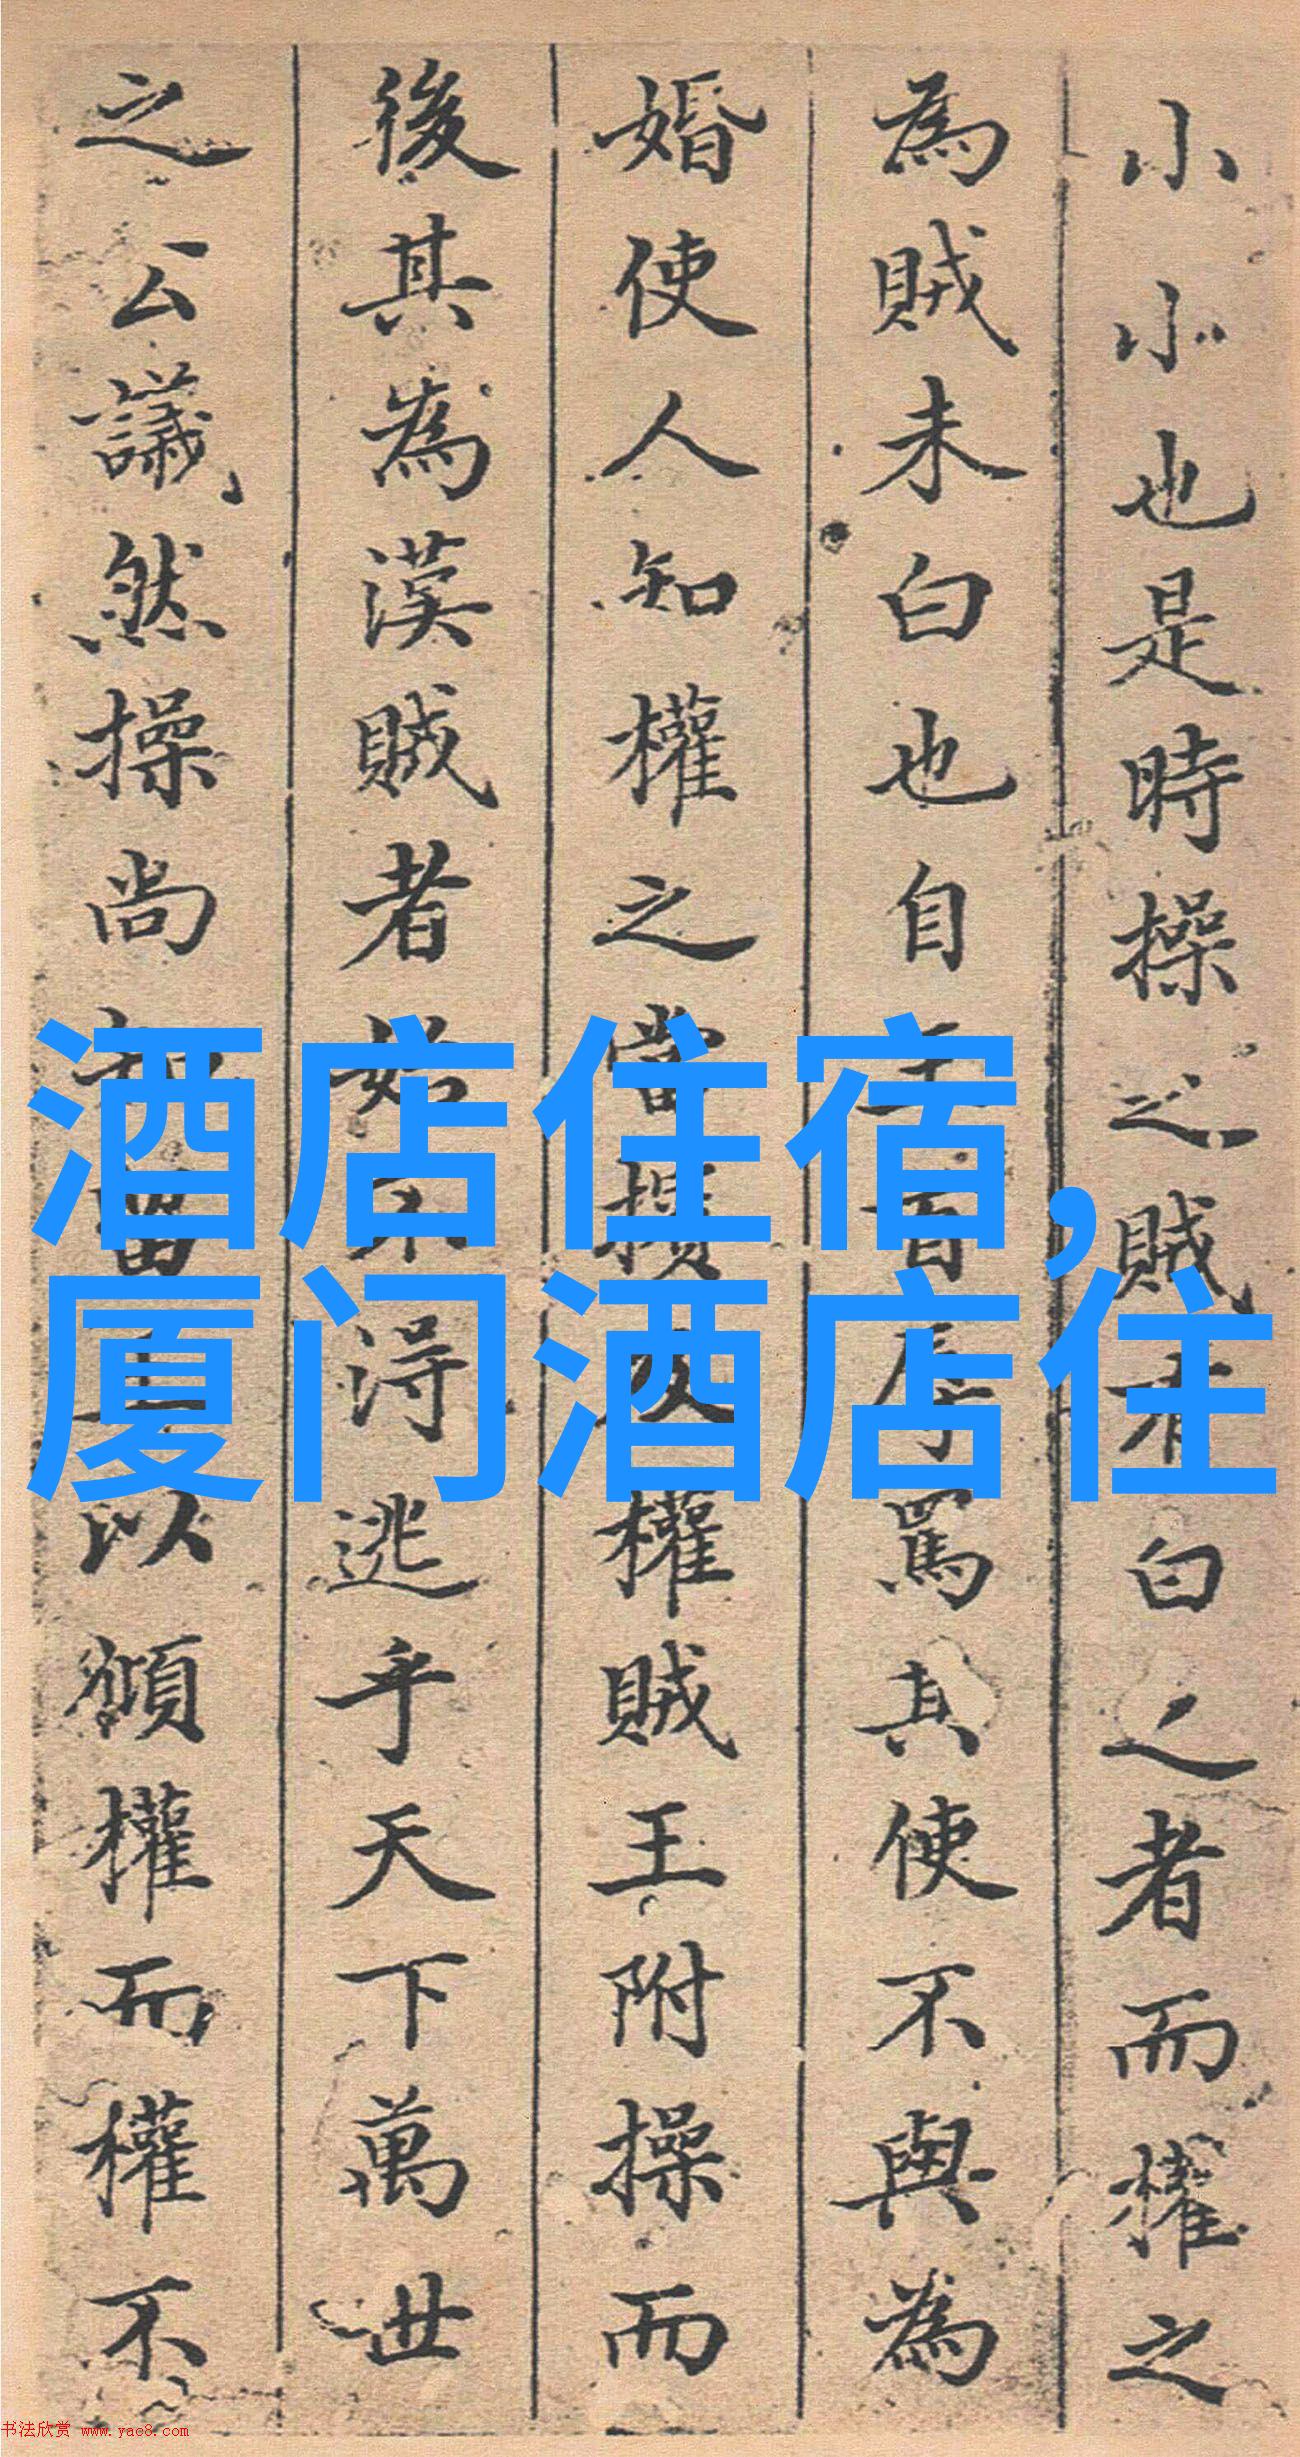 小小也是時操之賊有白之者而權之
為賊未白也自辱罵其使不與為
婚使人知權之當權賊王附操而
後其為漢賊者始不得逃乎天下萬世
之公議然操尚知以權而權不
酒店住宿,
厦门酒店住
书法欣赏 www.yac8.com